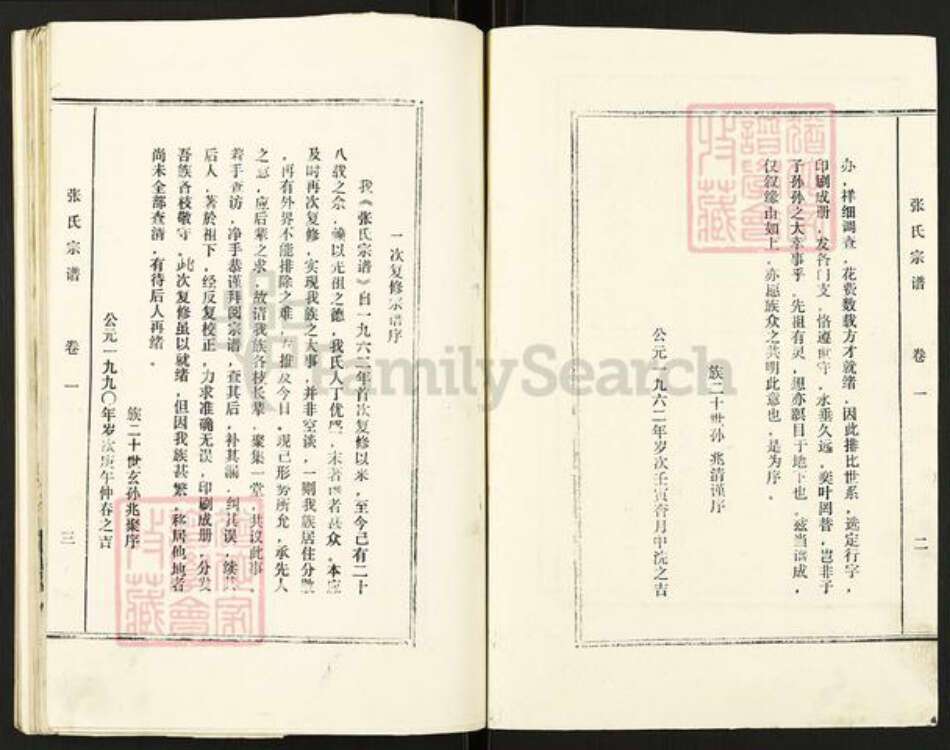 张氏宗谱 卷一 二
办，样细调查，花费数载方才就绪，因此排比世系，选定行字，
印刷成册，发各门支，恪遵世守，永垂久远，奕叶罔昔，岂非子
子孙孙之大幸事乎，先祖有灵，想亦瞑目于地下也，兹当谱成，
仅叙缘由如上，亦愿族众之共明此意也，是为序。
族二十世孙 兆清谨序
公元一九六二年岁次壬寅杏月中浣之吉
一次复修宗谱序
我《张氏宗谱》自一九六二年首次复修以来，至今已有二十
八载之余，以先祖之德，我氏人丁优，末者者甚众，本应
及时再次复修，实现我族之大事，并非空谈，一则我族居住分散
，再有外界不能排除之难，推及今日，现已形势所允，承先人
之意，应后辈之求，故请我族各枝长辈，聚集一堂，共议此事，
着手查访，净手恭谨拜阅宗谱，查其后，补其漏，纠其误，续其
后人，著於祖下，经反复校正，力求准确无误，印刷成册，分发
吾族各枝敬守，此次复修虽以就绪，但因我族甚繁，移居他地者
尚未全部查清，有待后人再续。
族二十世玄孙兆聚序
公元一九九〇年岁次庚午仲春之吉
张氏宗谱 卷一 三
FamilySearch
收藏